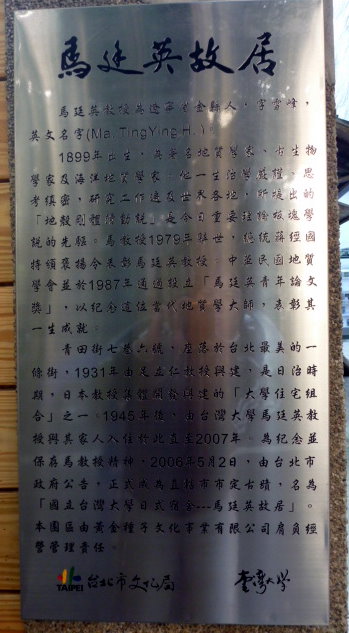 馬廷英故居
馬廷英教授為遼寧省金縣人,字雪峰,
英文名字(Ma, TingYing H.)。
1899年出生,為著名地質學家、古生物
學家及海洋地質學家。他一生治學嚴謹、思
考縝密,研究工作遍及世界各地,所提出的
「地殼剛體滑動說」是今日重要理論板塊學
說的先驅。馬教授1979年辭世,總統蔣經國
特頒褒揚令表彰馬廷英教授。中華民國地質
學會並於1987年通過設立「馬廷英青年論文
獎」,以紀念這位當代地質學大師,表彰其
一生成就。
青田街七巷六號,座落於台北最美的一
條街,1931年由足立仁教授興建,是日治時
期,日本教授集體開發興建的「大學住宅組
合」之一。1945年後,由台灣大學馬廷英教
授與其家人入住於此直至2007年。為紀念並
保存馬教授精神,2006年5月2日,由台北市
政府公告,正式成為直轄市市定古蹟,名為
「國立台灣大學日式宿舍---馬廷英故居」。
本園區由黃金種子文化事業有限公司肩負經
營管理責任。
TAIPEI 台北市文化局 臺灣大學